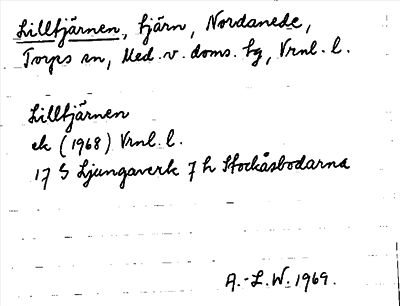 Lilltjärnen, tjärn, Nordanede,
Torps sn, Med. v. doms. tg, Vrnl. l.
Lilltjärnen
ek (1968) Vrnl. l.
17 S Ljungaverk 7 h Stockåsbodarna
A.-L.W. 1969.